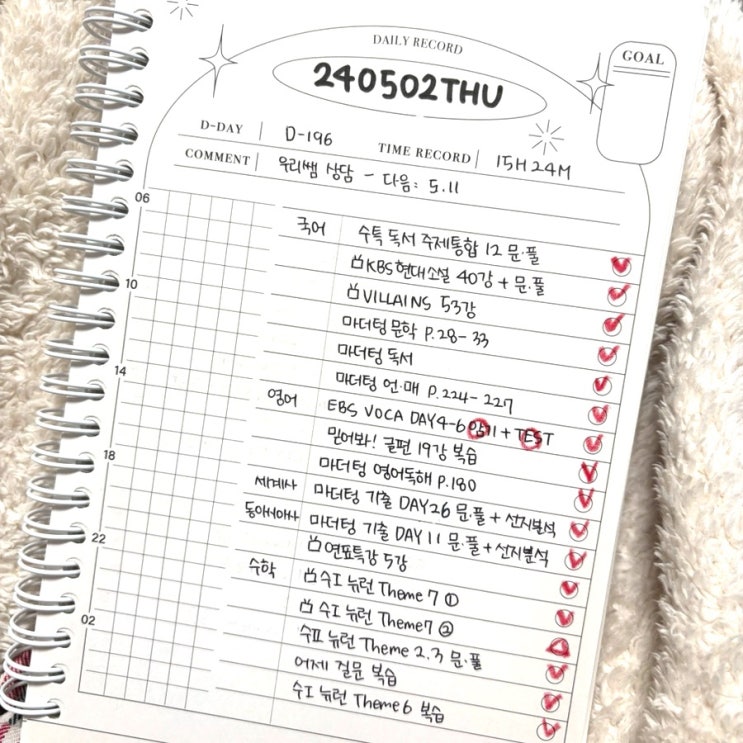 DAILY RECORD
240502THU
GOAL
D-DAY D-196 TIME RECORD 15H 24M
COMMENT 우리쌤 상담 - 다음: 5.11
06
국어 수특 독서 주제통합 12 문·풀
KBS현대소설 40강 + 문·풀
VILLAINS 53강
10
마더텅문학 P.28-33
마더텅 독서
마더텅 언·매 P.224-227
14
영어 EBS VOCA DAY4-6 암기 + TEST
믿어봐! 글편 19강 복습
마더텅 영어독해 P.180
18
세계사 마더텅 기출 DAY26 문·풀 + 선지분석
동아시아사 마더텅 기출 DAY 11 문·풀 + 선지분석
연표특강 5강
22
수학 수I 뉴런 Theme 7 ①
수I 뉴런 Theme7 ②
수II 뉴런 Theme 2.3 문·풀
02
어제 질문 복습
수I 뉴런 Theme6 복습